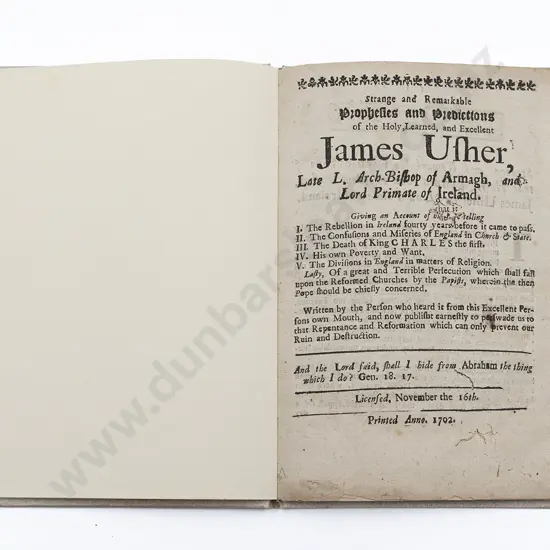 Strange and Remarkable
Prophesies and Predictions
of the Holy, Learned, and Excellent
James Uſher,
Late L. Arch-Biſhop of Armagh, and
Lord Primate of Ireland.
Giving an Account of his Foretelling
I. The Rebellion in Ireland fourty years before it came to paſs.
II. The Confuſions and Miſeries of England in Church & State.
III. The Death of King CHARLES the firſt.
IV. His own Poverty and Want.
V. The Diviſions in England in matters of Religion.
Laſtly, Of a great and Terrible Perſecution which ſhall fall
upon the Reformed Churches by the Papiſts, wherein the then
Pope ſhould be chiefly concerned.
Written by the Perſon who heard it from this Excellent Per-
ſons own Mouth, and now publiſht earneſtly to perſwade us to
that Repentance and Reformation which can only prevent our
Ruin and Deſtruction.
And the Lord ſaid, ſhall I hide from Abraham the thing
which I do? Gen. 18. 17.
Licenſed, November the 16th.
Printed Anno. 1702.
www.dunbarsl
.nz